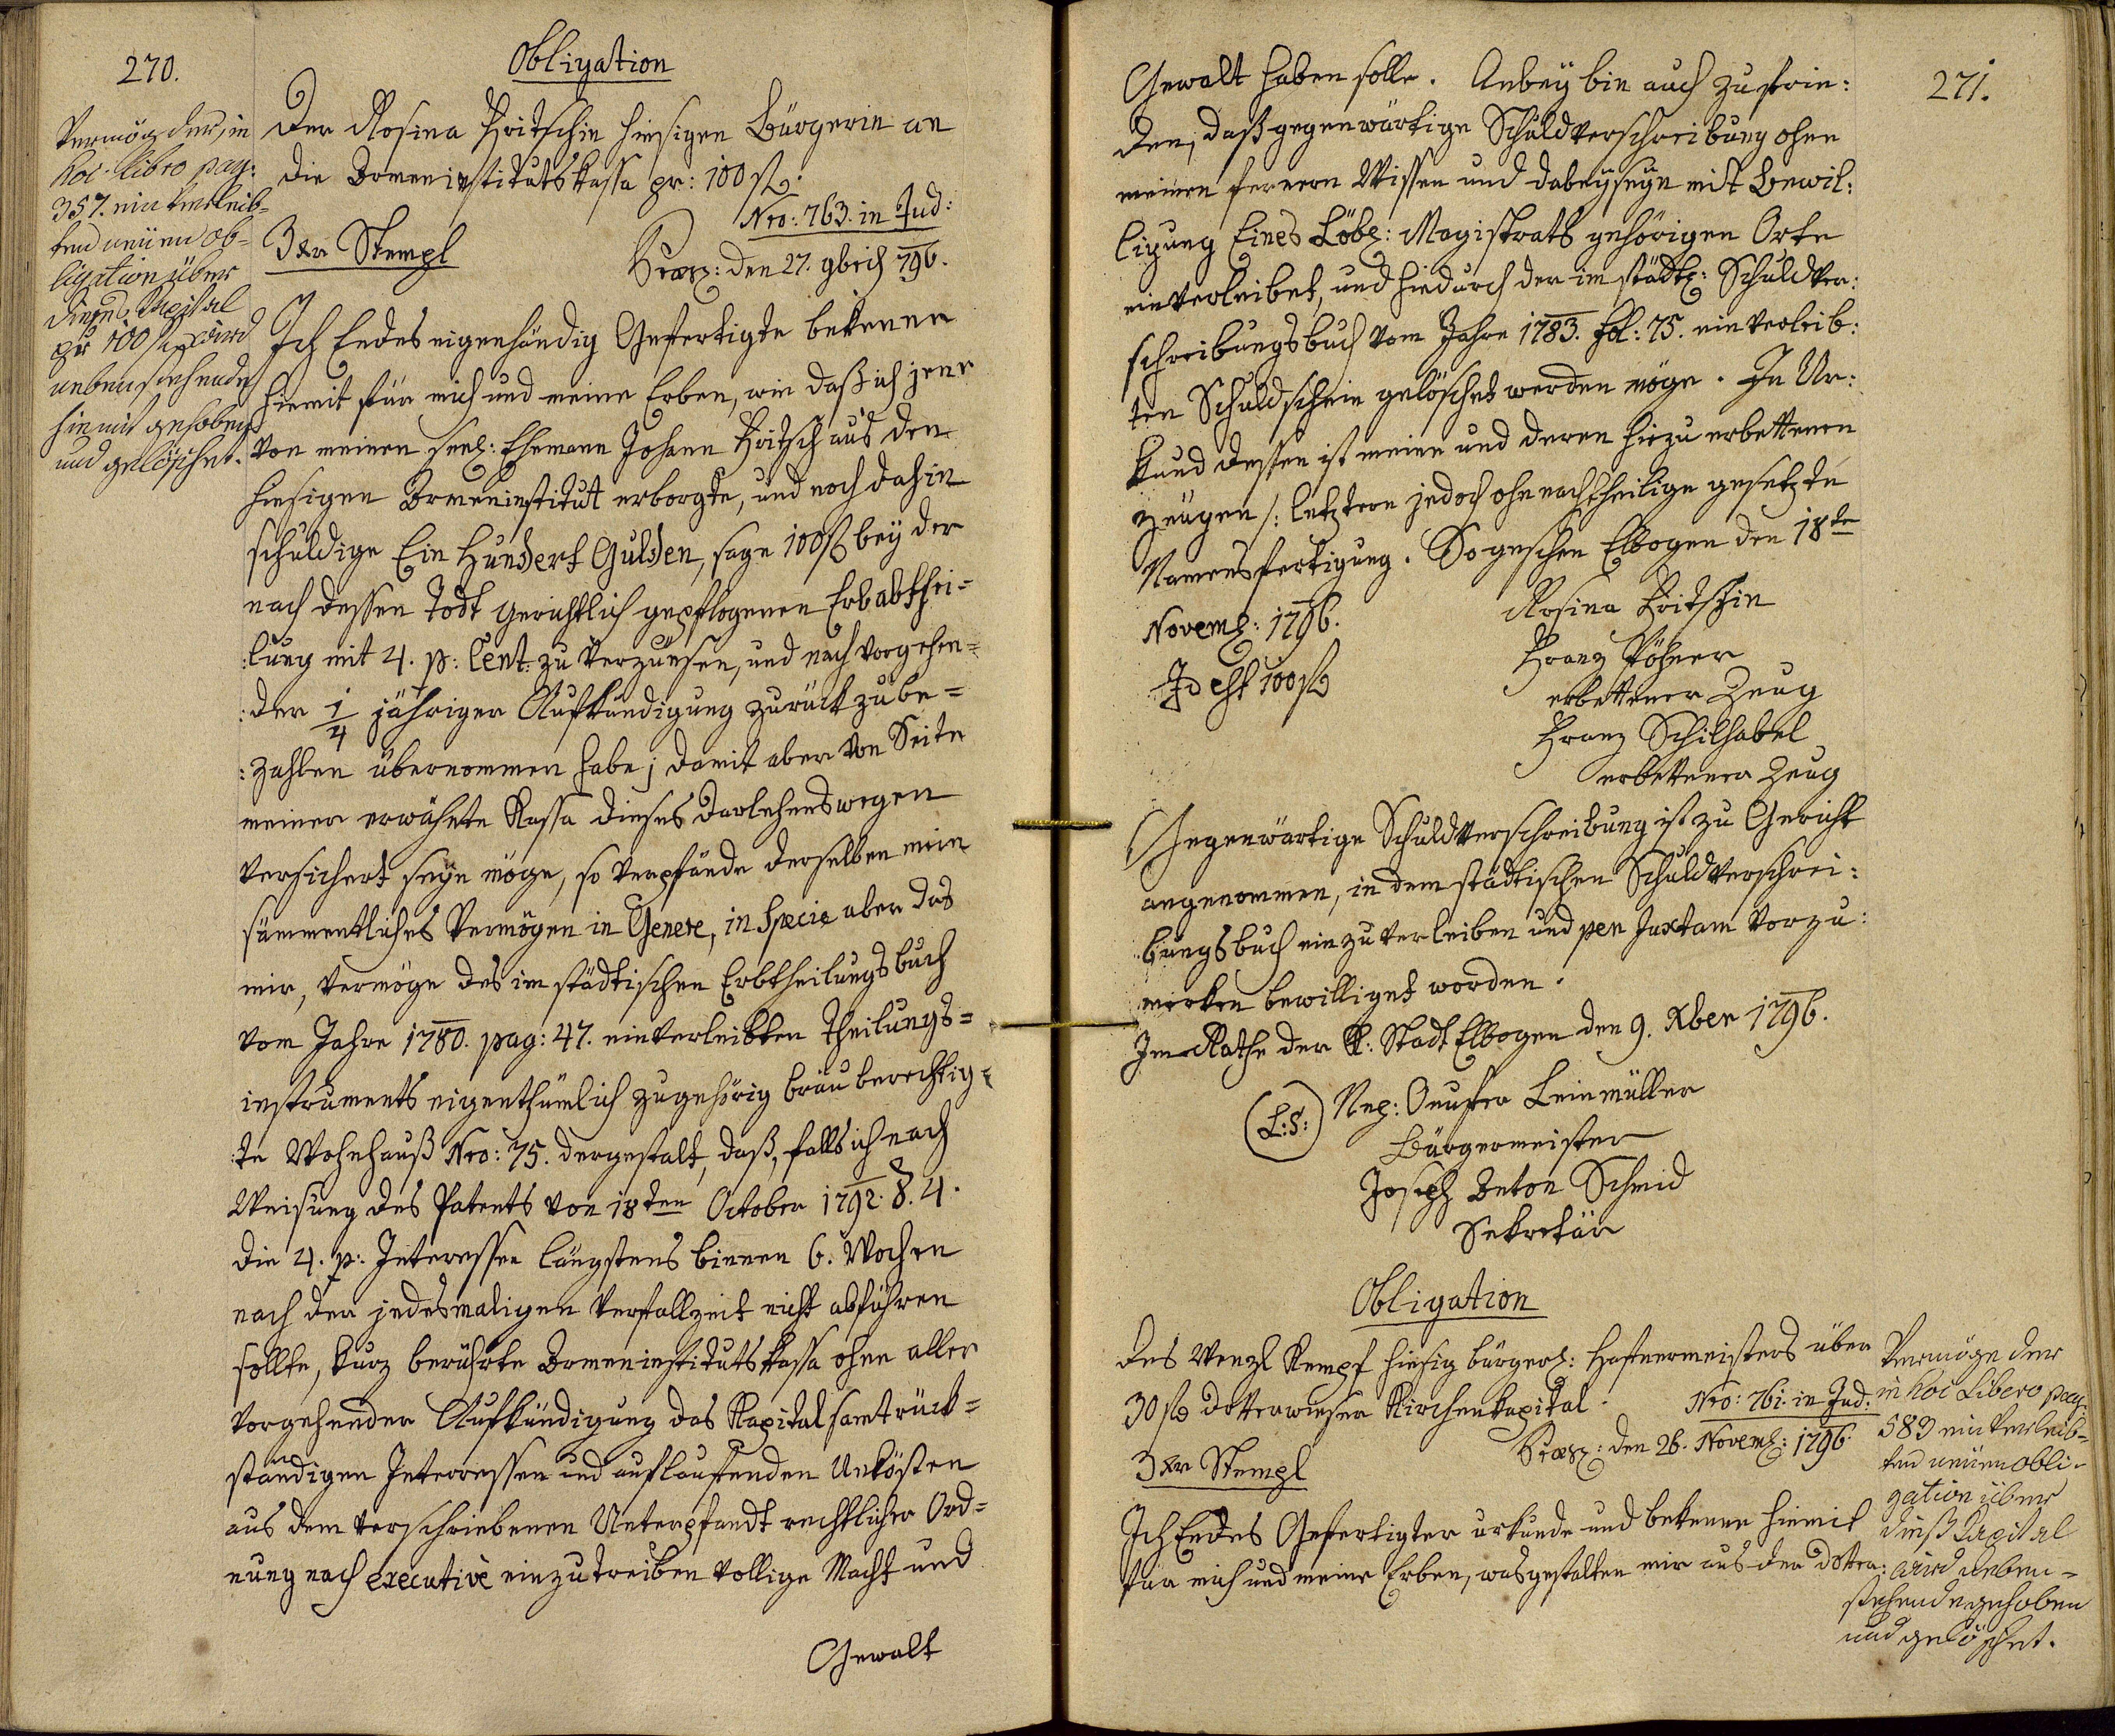 270.
Obligation
Der Rosina Fritschin hiesigen Bürgerin an
die Armeninstitutskassa pr: 100 f.
Nro: 763. in Jud:
3 xr Stempl
Præs: den 27. 9brich 796.
Vermög der, in
hoc libro pag:
357. einverleib-
ten neüen Ob-
ligation über
dieses Kapital
pr 100 f wird
nebenstehende
hiemit gehoben
und gelöschet.
Ich Endes eigenhändig Gefertigte bekenne
hiemit für mich und meine Erben, wie daß ich jene
von meinen seel: Ehemann Johann Fritsch aus den
hiesigen Armeninstitut erborgte, und noch dahin
schuldige Ein Hundert Gulden, sage 100 f bey der
nach dessen Todt gerichtlich gepflogenen Erbabthei-
:lung mit 4. p: Cent: zu verzünsen, und nach vorgehen-
:der 1/4 jähriger Aufkündigung zurück zu be-
:zahlen übernommen habe; damit aber von Seite
meiner erwähnte Kassa dieses Darlehens wegen
versichert seyn möge, so verpfände derselben mein
sämmentliches Vermögen in Genere, in Specie aber das
mir, vermöge des im städtischen Erbtheilungsbuch
vom Jahre 1780. pag: 47. einverleibten Theilungs-
instruments eigenthümlich zugehörig bräuberechtig-
:te Wohnhauß Nro: 75. dergestalt, daß, falls ich nach
Weisung des Patents von 18ten October 1792. §. 4.
die 4. p: Interessen längstens binnen 6. Wochen
nach der jedesmaligen Verfallzeit nicht abführen
sollte, kurz berührte Armeninstitutskassa ohne aller
vorgehender Aufkündigung das Kapital samt rück-
ständigen Interressen und auflaufenden Unkösten
aus dem verschriebenen Unterpfandt rechtlicher Ord-
nung nach executivè einzutreiben vollige Macht und
Gewalt
271.
Gewalt haben solle. Anbey bin auch zufrie:
den, daß gegenwärtige Schuldverschreibung ohne
meinen fernern Wissen und dabeyseyn mit Bewil:
ligung Eines Löbl: Magistrats gehörigen Orte
einverleibet, und hiedurch der im städt: Schuldver:
schreibungsbuch vom Jahre 1783. fol: 75. einverleib:
ten Schuldschein gelöschet werden möge. In Ur:
kund dessen ist meine und deren hiezu erbettenen
Zeügen /: letztere jedoch ohnnachtheilige gesetzte
Namensfertigung. So geschehen Elbogen den 18te
Novemb: 1796.
Rosina Fritschin
Id est 100 f
Franz Pöhner
erbettener Zeug
Franz Schilhabel
erbettener Zeug
Gegenwärtige Schuldverschreibung ist zu Gericht
angenommen, in dem städtischen Schuldverschrei:
bungsbuch einzuverleiben und per Juxtam vorzu:
merken bewilliget worden.
Im Rathe der K: Stadt Elbogen den 9. Xber 1796.
(L:S:) Nep: Onufer Leinmüller
Bürgermeister
Joseph Anton Schmid
Sekretär
Obligation
des Wenzl Kempf hiesig bürgerl: Hafnermeisters über
30 f Dotterwieser Kirchenkapital.
Nro: 761. in Jud:
3 xr Stempl
Præs: den 26. Novemb: 1796.
Ich Endes Gefertigter urkunde und bekenne hiemit
für mich und meine Erben, wasgestalten mir aus der Dotter:
Vermöge der
in hoc Libero pag:
583 einverleib-
ten neüen Obli-
gation über
dieß Capital
wird neben-
stehende gehoben
und gelöschet.